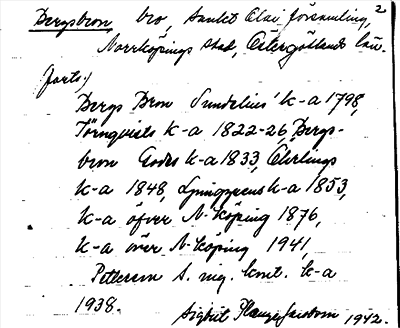 Bergsbron bro, Sankt Olai församling, 2
Norrköpings stad, Östergötlands län.
forts.)
Bergs Bron Sundelius' k-a 1798,
Törnqvists k-a 1822-26, Bergs-
bron Godes k-a 1833, Ehrlings
k-a 1848, Ljunggrens k-a 1853,
k-a öfver N-köping 1876,
k-a över N-köping 1941,
Petterson S. ing. k-a
1938.
Sigrid 1942.